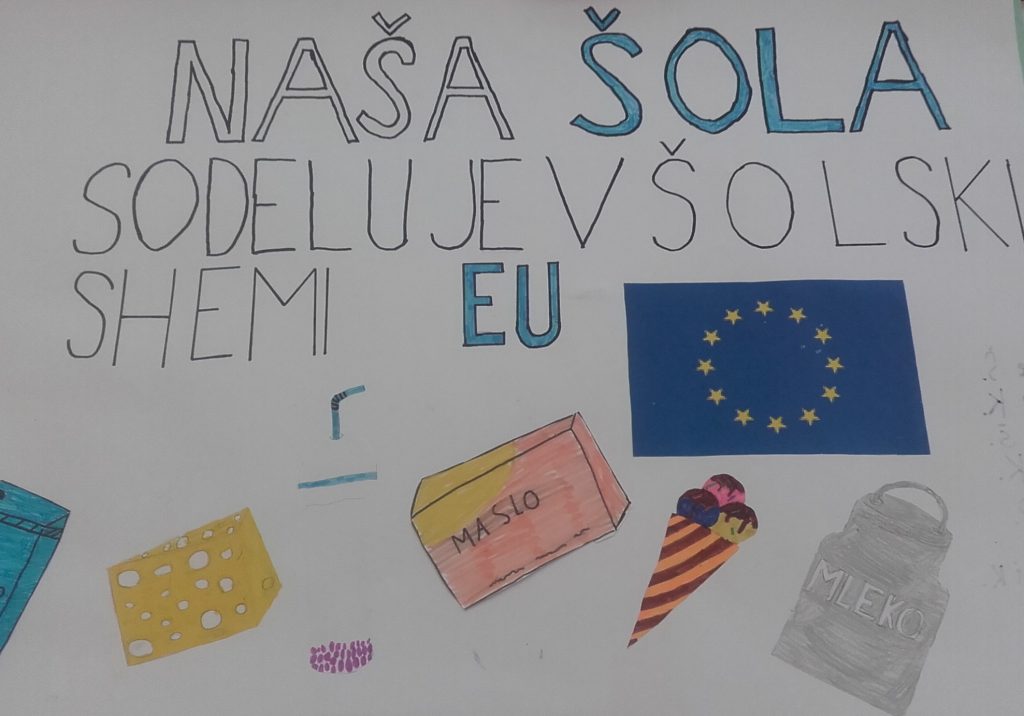 NAŠA ŠOLA
SODELUJE V ŠOLSKI
SHEMI EU
MASLO
MLEKO